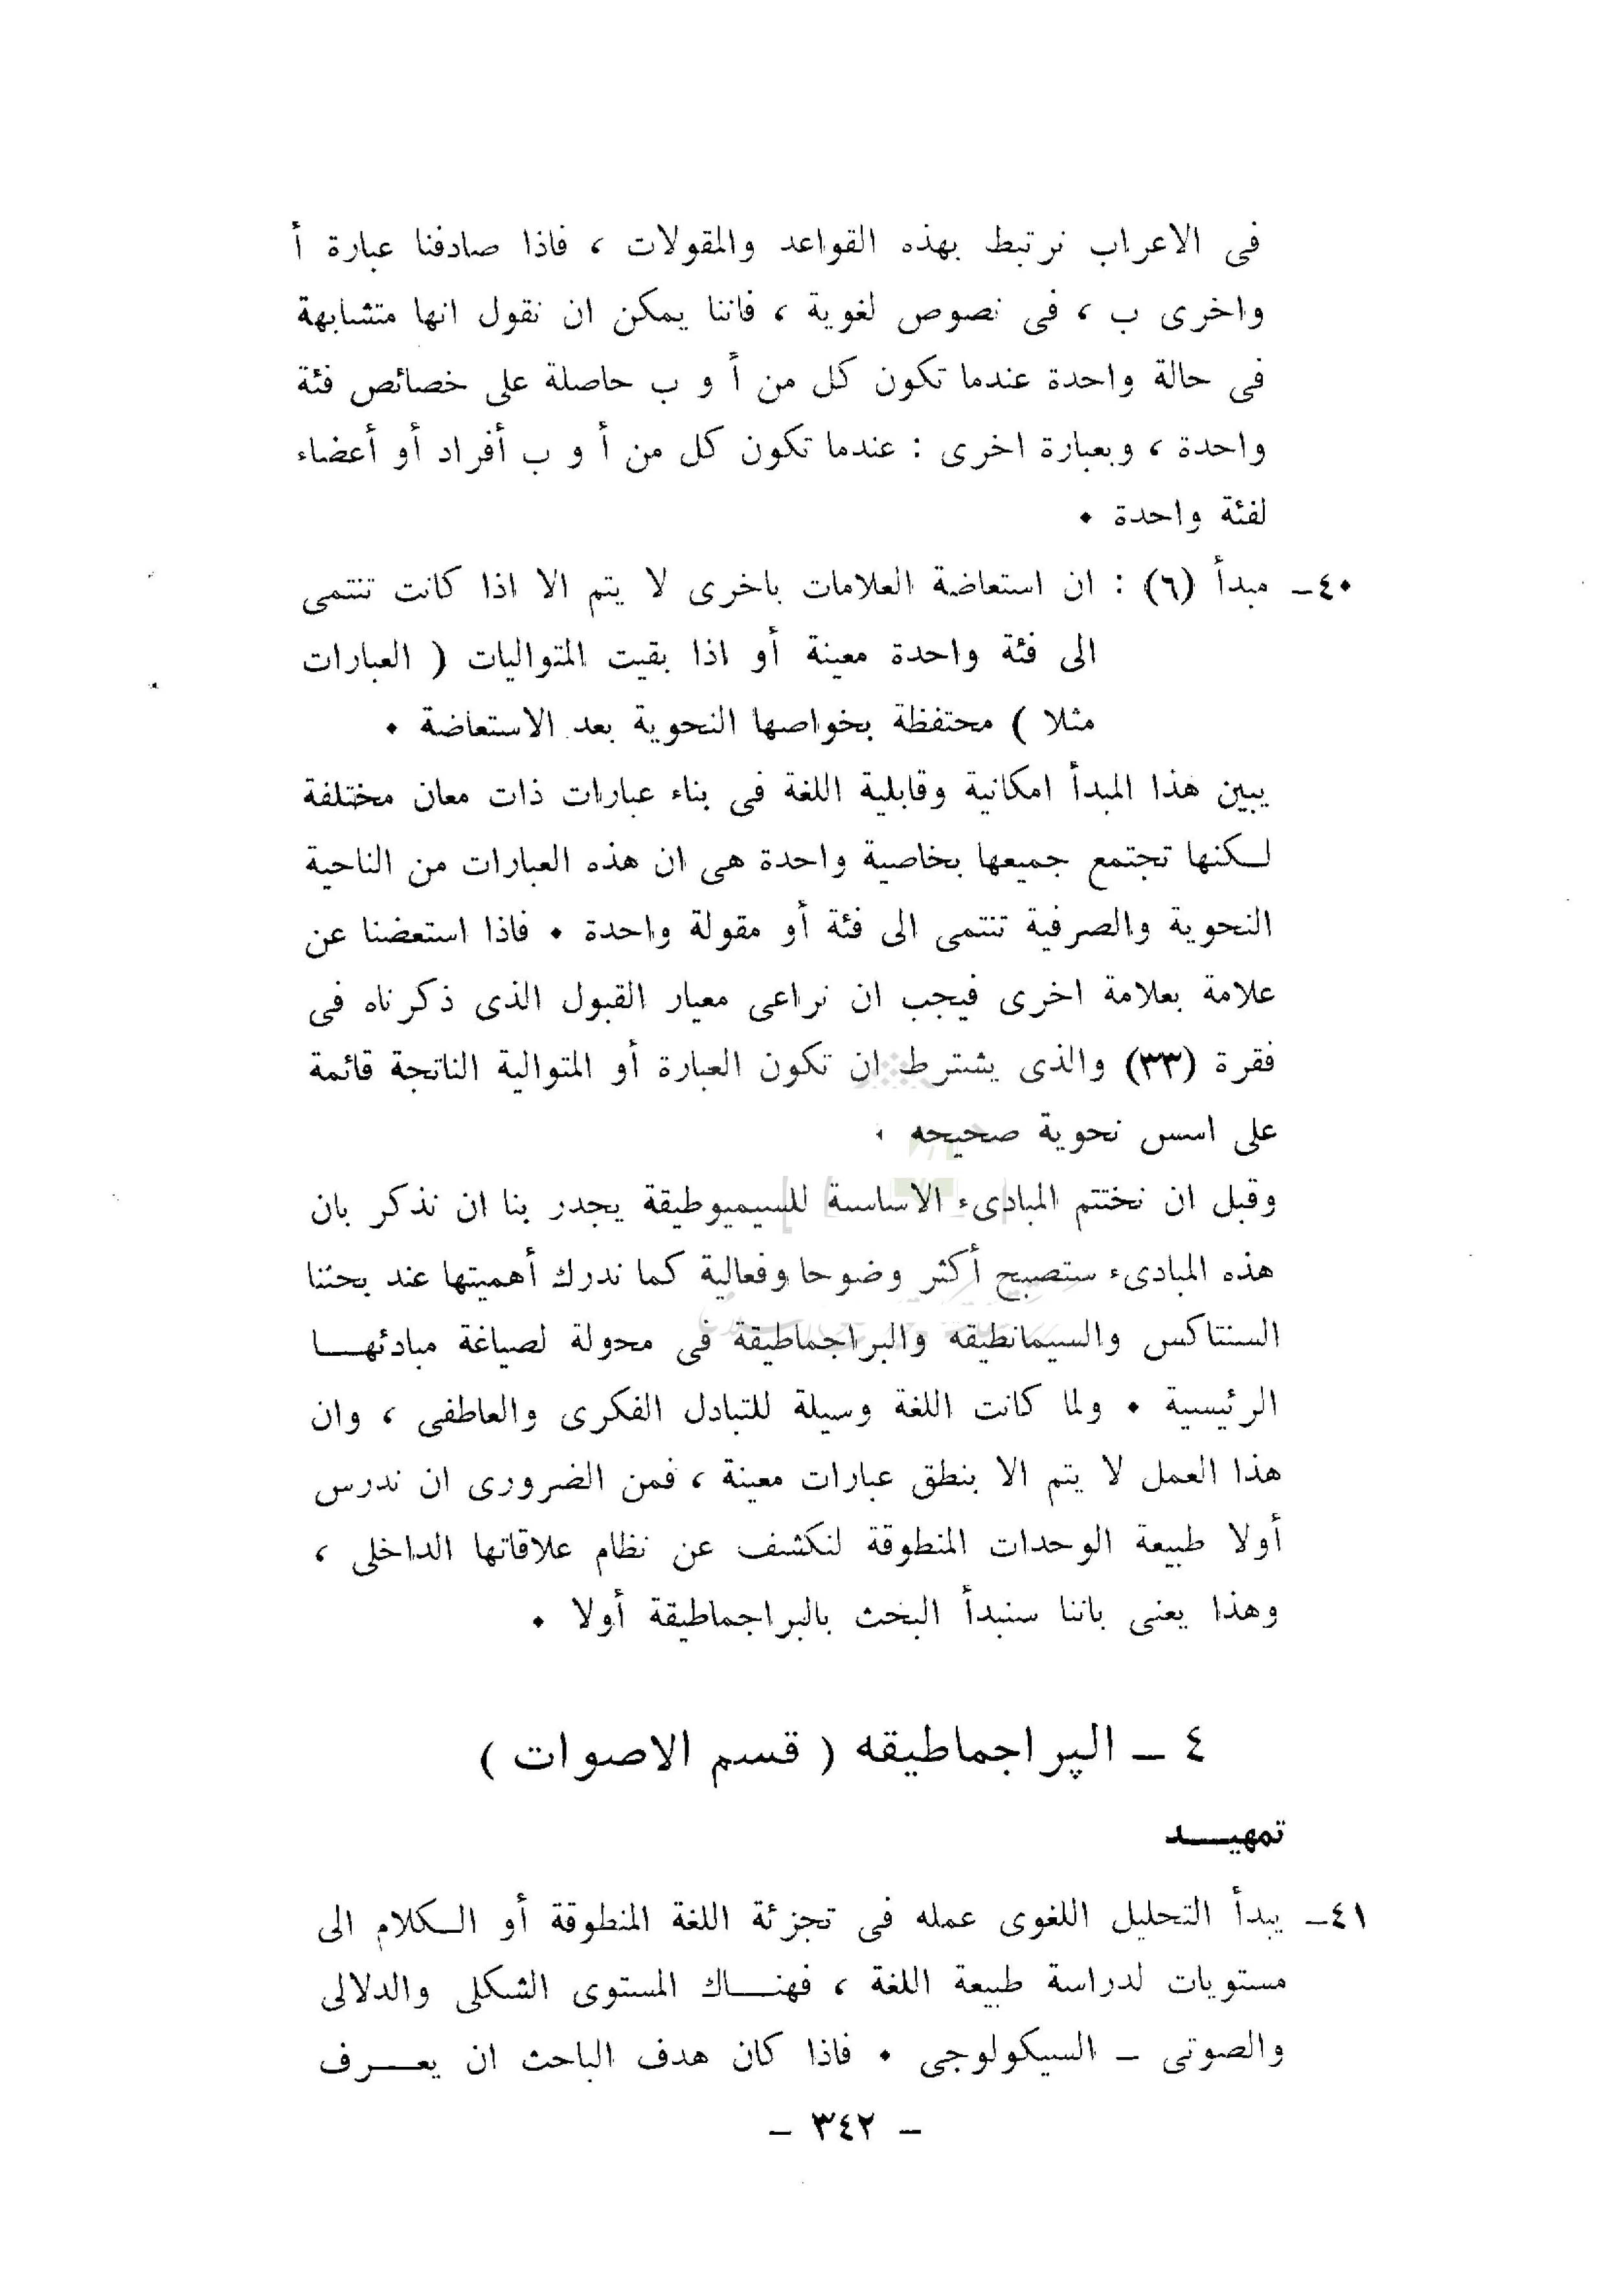 فى الاعراب نرتبط بهذه القواعد والمقولات ، فاذا صادفنا عبارة أ
واخرى ب ، فى نصوص لغوية ، فاننا يمكن ان نقول انها متشابهة
فى حالة واحدة عندما تكون كل من أ و ب حاصلة على خصائص فئة
واحدة ، وبعبارة اخرى : عندما تكون كل من أ و ب أفراد أو أعضاء
لفئة واحدة ٠
٤٠ـ مبدأ (٦) : ان استعاضة العلامات باخرى لا يتم الا اذا كانت تنتمى
الى فئة واحدة معينة أو اذا بقيت المتواليات ( العبارات
مثلا ) محتفظة بخواصها النحوية بعد الاستعاضة ٠
يبين هذا المبدأ امكانية وقابلية اللغة فى بناء عبارات ذات معان مختلفة
لـكنها تجتمع جميعها بخاصية واحدة هى ان هذه العبارات من الناحية
النحوية والصرفية تنتمى الى فئة أو مقولة واحدة ٠ فاذا استعضنا عن
علامة بعلامة اخرى فيجب ان نراعى معيار القبول الذى ذكرناه فى
فقرة (٣٣) والذى يشترط ان تكون العبارة أو المتوالية الناتجة قائمة
على اسس نحوية صحيحه ٠
وقبل ان نختتم المبادىء الاساسية للسيميوطيقة يجدر بنا ان نذكر بان
هذه المبادىء ستصبح أكثر وضوحا وفعالية كما ندرك أهميتها عند بحثنا
السنتاكس والسيمانطيقه والبراجماطيقة فى محولة لصياغة مبادئهـــا
الرئيسية ٠ ولما كانت اللغة وسيلة للتبادل الفكرى والعاطفى ، وان
هذا العمل لا يتم الا بنطق عبارات معينة ، فمن الضرورى ان ندرس
أولا طبيعة الوحدات المنطوقة لنكشف عن نظام علاقاتها الداخلى ،
وهذا يعنى باننا سنبدأ البحث بالبراجماطيقة أولا ٠
٤ ـ الپراجماطيقه ( قسم الاصوات )
تمهيـــد
٤١ـ يبدأ التحليل اللغوى عمله فى تجزئة اللغة المنطوقة أو الـكلام الى
مستويات لدراسة طبيعة اللغة ، فهنــاك المستوى الشكلى والدلالى
والصوتى ـ السيكولوجى ٠ فاذا كان هدف الباحث ان يعـــرف
ـ ٣٤٢ ـ